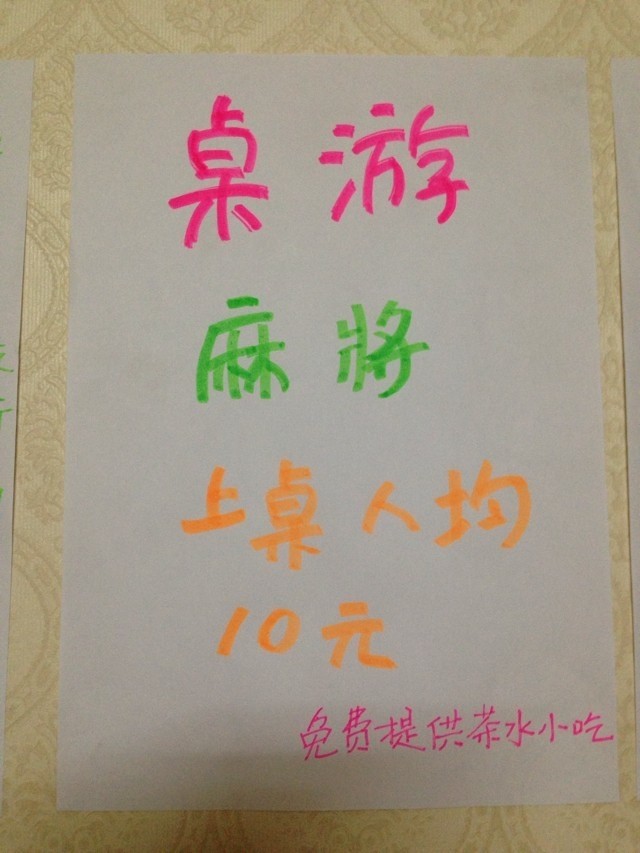 桌游
麻將
上桌人均
10元
免费提供茶水小吃